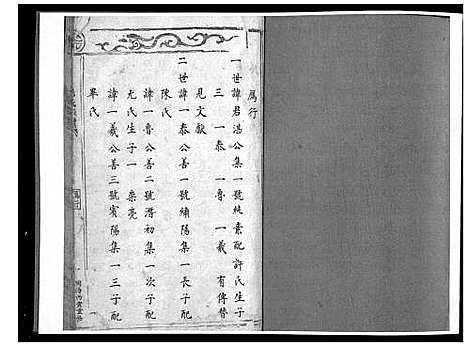 鴈行
一世諱君湛公集一號純素配許氏生子
三 一泰 一魯 一羲 有傳替
見文獻
二世諱一泰公善一號繡陽集一長子配
陳氏
諱一魯公善二號潛初集一次子配
尤氏生子一 榮亮
諱一羲公善三號賓陽集一三子配
畢氏